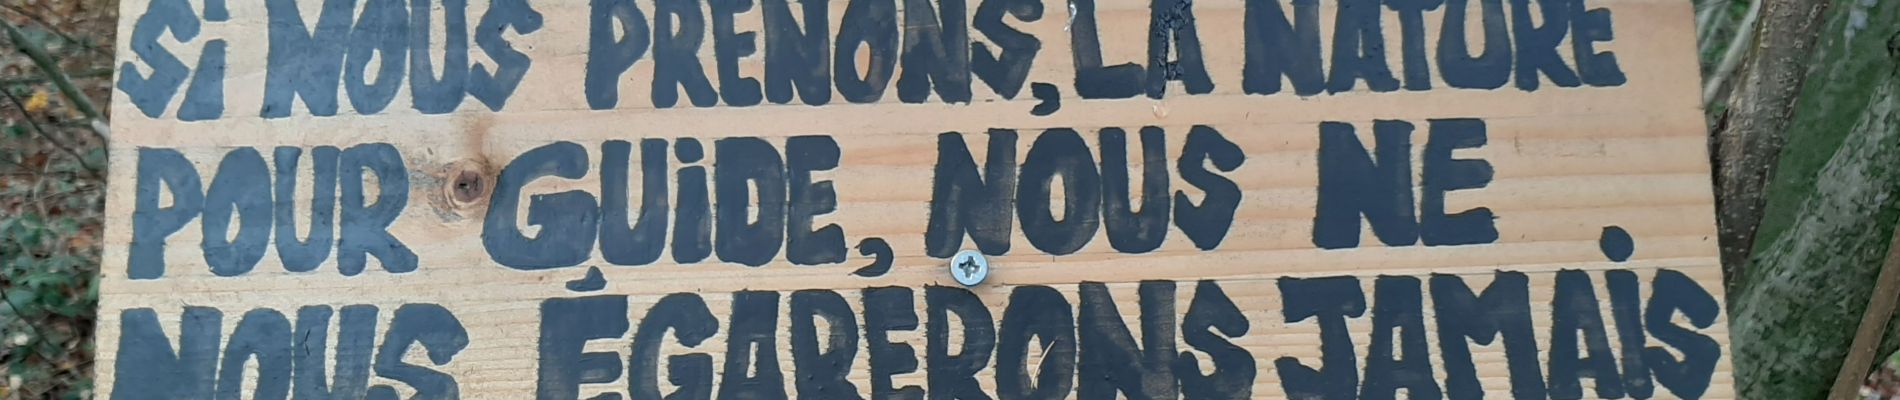 Si NOUS PRENONS, LA NATURE
POUR GUiDE, NOUS NE
NOUS ÉGARERONS JAMAiS